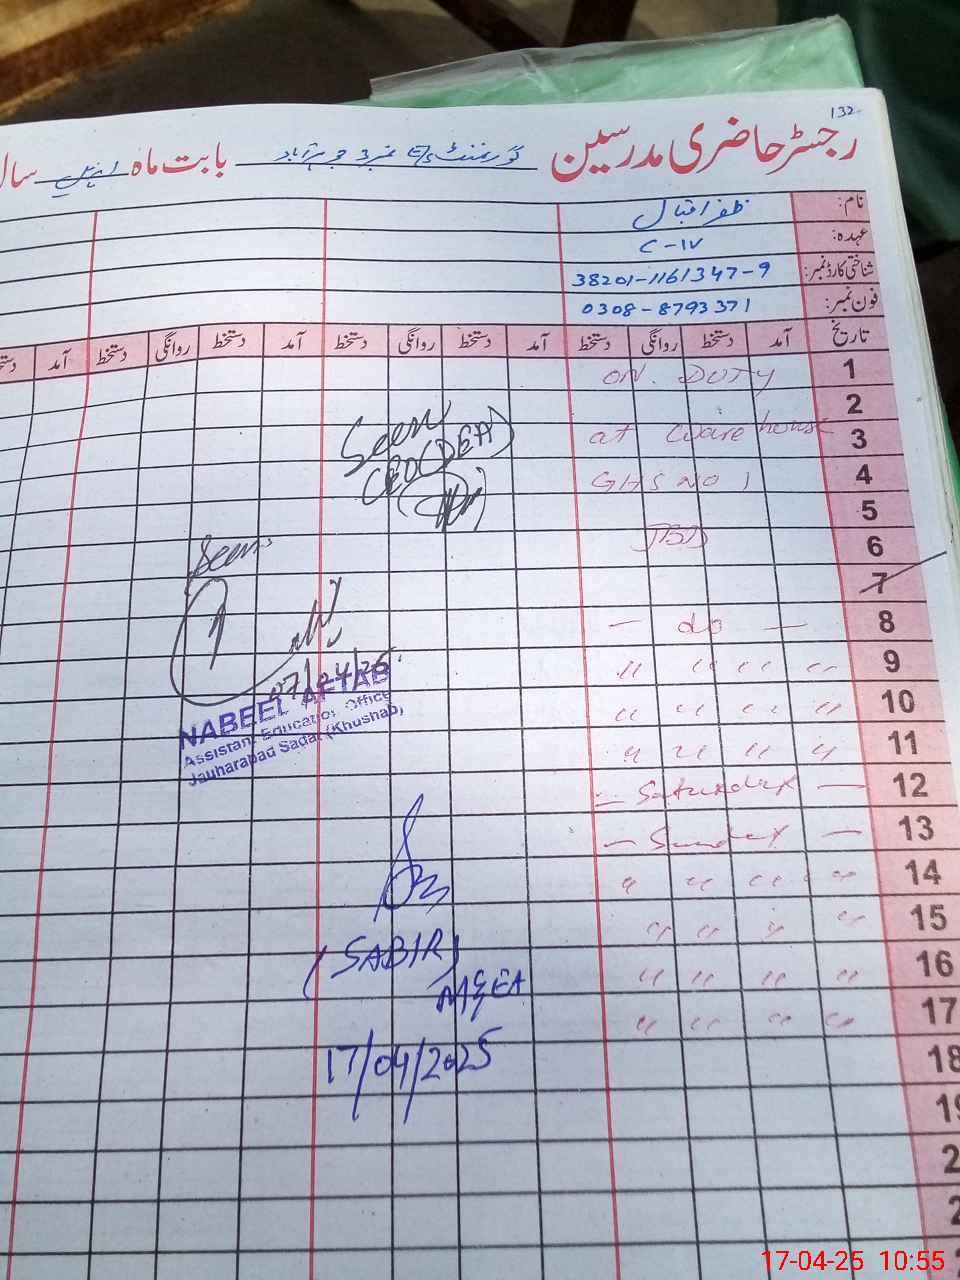 132
رجسٹر حاضری مدرسین گورنمنٹ E/S نمبر 3 جوہرآباد بابت ماہ اپریل سال
نام: ظفر اقبال
عہدہ: C-IV
شناختی کارڈ نمبر: 38201-1161347-9
فون نمبر: 0308-8793371
تاریخ آمد دستخط روانگی دستخط آمد دستخط روانگی دستخط آمد دستخط روانگی دستخط آمد
1 ON DUTY
2
3 at Ware house
4 GHS NO 1
5
6 JBD
7
8 — do —
9 " " " "
10 " " " "
11 " " " "
12 — Saturday —
13 — Sunday —
14 " " " "
15 " " " "
16 " " " "
17 " " " "
18
19
Seen
CEO (DEA)
Seen
07/04/25
NABEEL AFTAB
Assistant Education Office
Jauharabad Sadar (Khushab)
(SABIR)
MEA
17/04/2025
17-04-25 10:55